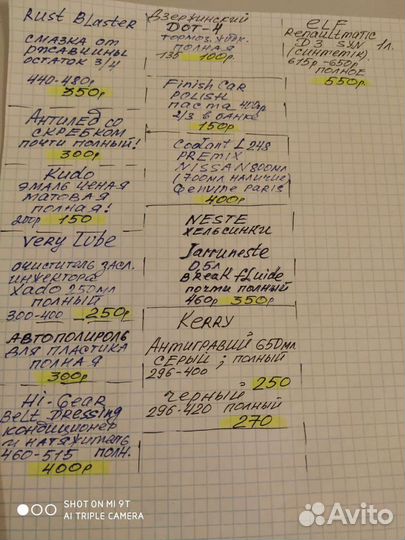 Rust Blaster
смазка от
ржавчины
остаток 3/4
440-480р
350р
Антилёд со
скребком
почти полный!
300р
Kudo
эмаль ценая
матовая
полная!
200р 150
Very Tube
очиститель засл.
инжектора
Xado 250мл
полный
300-400 250р
Автополироль
для пластика
полная
300р
Hi-Gear
Belt Dressing
кондиционер
и натяжитель
460-515 полн.
400р
Дзержинский
DOT-4
тормоз. жидк.
полная
135 100р
Finish Car
POLISH
паста 400р
2/3 в банке
150р
Coolant L248
PREMIX
NISSAN 800мл
(700мл наличие)
Genuine Parts
400р
NESTE
Хельсинки
Jarruneste
0,5л
Break fluide
почти полный
460р 350р
KERRY
Антигравий 650мл
серый; полный
296-400
250
черный
296-420 полный
270
elf
Renaultmatic 1л.
D3 SYN
(синтетик)
615р-650р
полное
550р
SHOT ON MI 9T
AI TRIPLE CAMERA
Avito